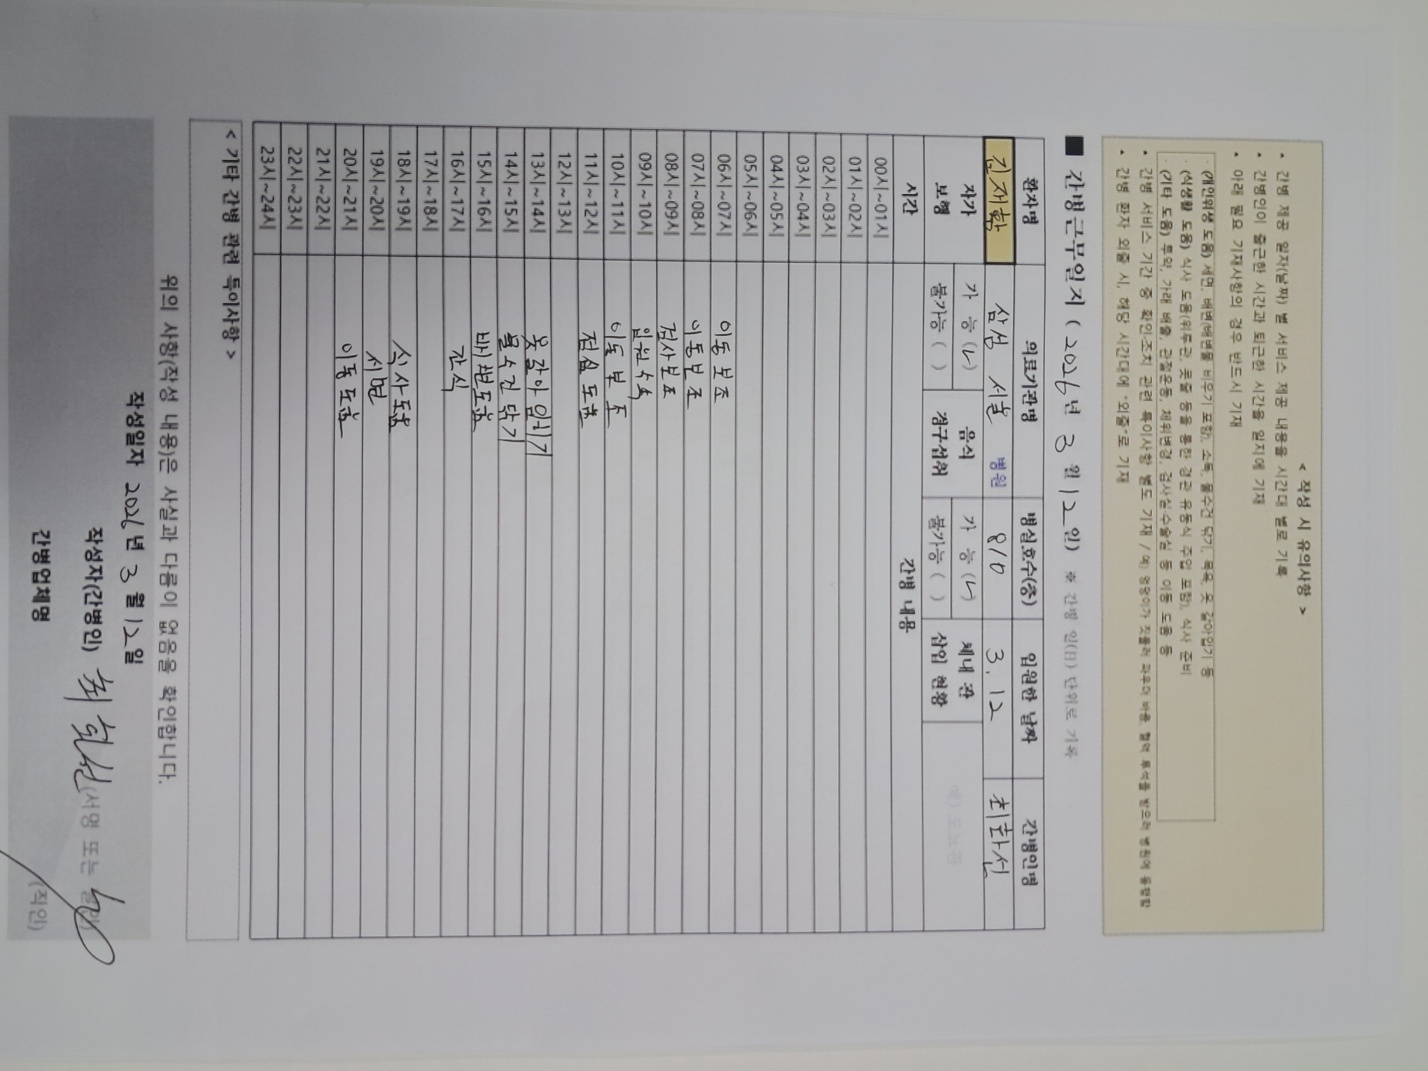 < 작성 시 유의사항 >
• 간병 제공 일자(날짜) 별 서비스 제공 내용을 시간대 별로 기록
• 간병인이 출근한 시간과 퇴근한 시간을 일지에 기재
• 아래 필요 기재사항의 경우 반드시 기재
· (개인위생 도움) 세면, 배변(배변물 비우기 포함), 소독, 물수건 닦기, 목욕, 옷 갈아입기 등
· (식생활 도움) 식사 도움(위루관, 콧줄 등을 통한 경관 유동식 주입 포함), 식사 준비
· (기타 도움) 투약, 가래 배출, 관절운동, 체위변경, 검사실·수술실 등 이동 도움 등
• 간병 서비스 기간 중 확인·조치 관련 특이사항 별도 기재 / 예) 엉덩이가 짓물러 파우더 바름, 혈액 투석을 받으러 병원에 동행함
• 간병 환자 외출 시, 해당 시간대에 "외출"로 기재
■ 간병근무일지 ( 2026년 3월 12일) ※ 간병 일(日) 단위로 기록
환자명 의료기관명 병실호수(층) 입원한 날짜 간병인명
김재학 삼성 서울 병원 810 3.12 최화선
자가 보행 가 능 ( ) 불가능 ( ) 음식 경구섭취 가 능 ( ) 불가능 ( ) 체내 관 삽입 현황
시간 간병 내용
00시~01시
01시~02시
02시~03시
03시~04시
04시~05시
05시~06시
06시~07시 이동 보조
07시~08시 이동보조
08시~09시 검사보조
09시~10시 입원수속
10시~11시 이동 부 조
11시~12시 점심 도움
12시~13시
13시~14시 옷갈아입히기
14시~15시 물수건 닦기
15시~16시 배변도움
16시~17시 간식
17시~18시
18시~19시 식사도움
19시~20시 세면
20시~21시 이동 도움
21시~22시
22시~23시
23시~24시
< 기타 간병 관련 특이사항 >
위의 사항(작성 내용)은 사실과 다름이 없음을 확인합니다.
작성일자 2026년 3월 12일
작성자(간병인) 최화선 (서명 또는
간병업체명 (직인)